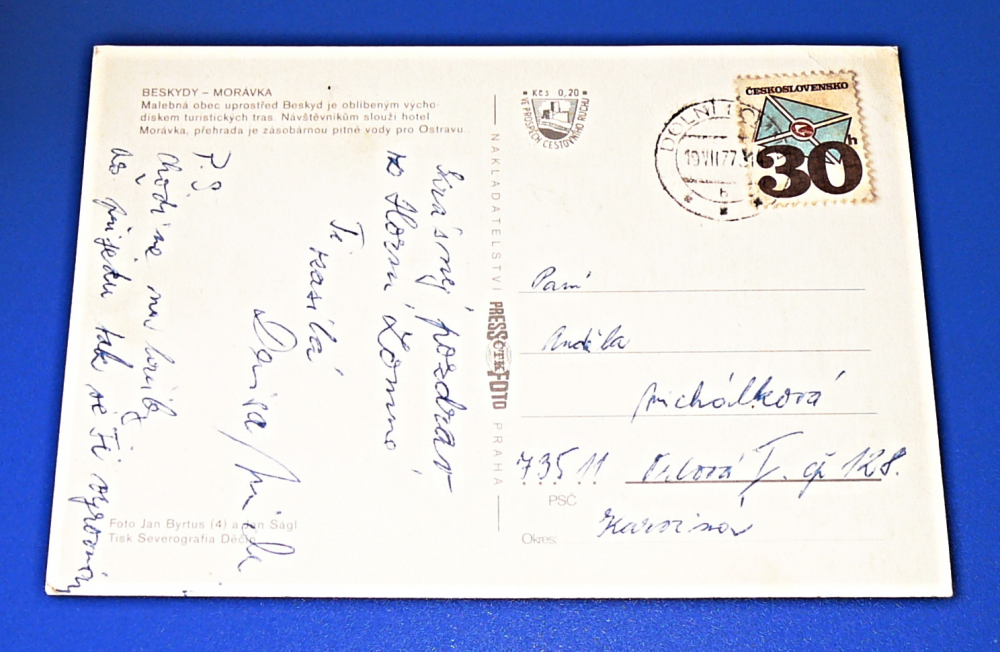 BESKYDY – MORÁVKA
Malebná obec uprostřed Beskyd je oblíbeným výcho-
diskem turistických tras. Návštěvníkům slouží hotel
Morávka, přehrada je zásobárnou pitné vody pro Ostravu..
Krásný pozdrav
z Horní Lomné
Ti
zasílá
Denisa
P.S
Chodíme na hřiby
až přijedu tak se Ti vyrovnám
Foto Jan Byrtus (4) a Jan Ságl
Tisk Severografia Děčín
NAKLADATELSTVÍ PRESSFOTO PRAHA
ČTK
Kčs 0,20
VE PROSPĚCH CESTOVNÍHO RUCHU
DOLNÍ LO
19.VII.77
ČESKOSLOVENSKO
30h
Paní
Anděla
Michálková
735 11 Orlová I. čp 128.
PSČ
Okres: Karviná